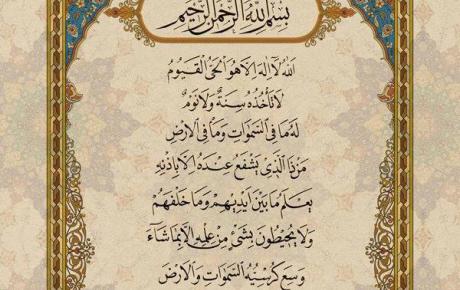 بسم الله الرحمن الرحيم
الله لا إله إلا هو الحي القيوم
لا تأخذه سنة ولا نوم
له ما في السموات وما في الأرض
من ذا الذي يشفع عنده إلا بإذنه
يعلم ما بين أيديهم وما خلفهم
ولا يحيطون بشيء من علمه إلا بما شاء
وسع كرسيه السموات والأرض